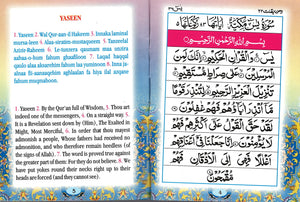 YASEEN
1. Yaseen 2. Wal-Qur-aan-il Hakeem 3. Innaka laminal
mursa-leen 4. Alaa-siraatim-mustaqeem 5. Tanzeelal
Aziziir-Raheem 6. Le-tunzera qaumam maa unzira
aabaa-ohum fahum ghaafiloon 7. Laqad haqqal
qaulo alaa aksarehim fahum laa yuminoon 8. Innaa ja-
alnaa fii-aanaaqehim aghlaalan fa hiya ilal azqane
fahum muqmahoon
1. Yaseen 2. By the Qur'an full of Wisdom, 3. Thou art
indeed one of the messengers, 4. On a straight way. 5.
It is a Revelation sent down by (Him), The Exalted in
Might, Most Merciful, 6. In order that thou mayest
admonish a people, Whose fathers had received no
admonition, and who therefore remain heedless (of
the signs of Allah). 7. The word is proved true against
the greater part of them: For they do not believe. 8. We
have put yokes round their necks right up to their chins, so that their
heads are forced (and they cannot see).
5
بِسْمِ اللهِ الرَّحْمٰنِ الرَّحِيْمِ
يٰسٓ وَالْقُرْاٰنِ الْحَكِيْمِ اِنَّكَ لَمِنَ
الْمُرْسَلِيْنَ عَلٰى صِرَاطٍ مُّسْتَقِيْمٍ تَنْزِيْلَ
الْعَزِيْزِ الرَّحِيْمِ لِتُنْذِرَ قَوْمًا مَّآ
اُنْذِرَ اٰبَآؤُهُمْ فَهُمْ غٰفِلُوْنَ
لَقَدْ حَقَّ الْقَوْلُ عَلٰٓى اَكْثَرِهِمْ فَهُمْ
لَا يُؤْمِنُوْنَ اِنَّا جَعَلْنَا فِيْٓ اَعْنَاقِهِمْ
اَغْلٰلًا فَهِيَ اِلَى الْاَذْقَانِ فَهُمْ
مُّقْمَحُوْنَ
4